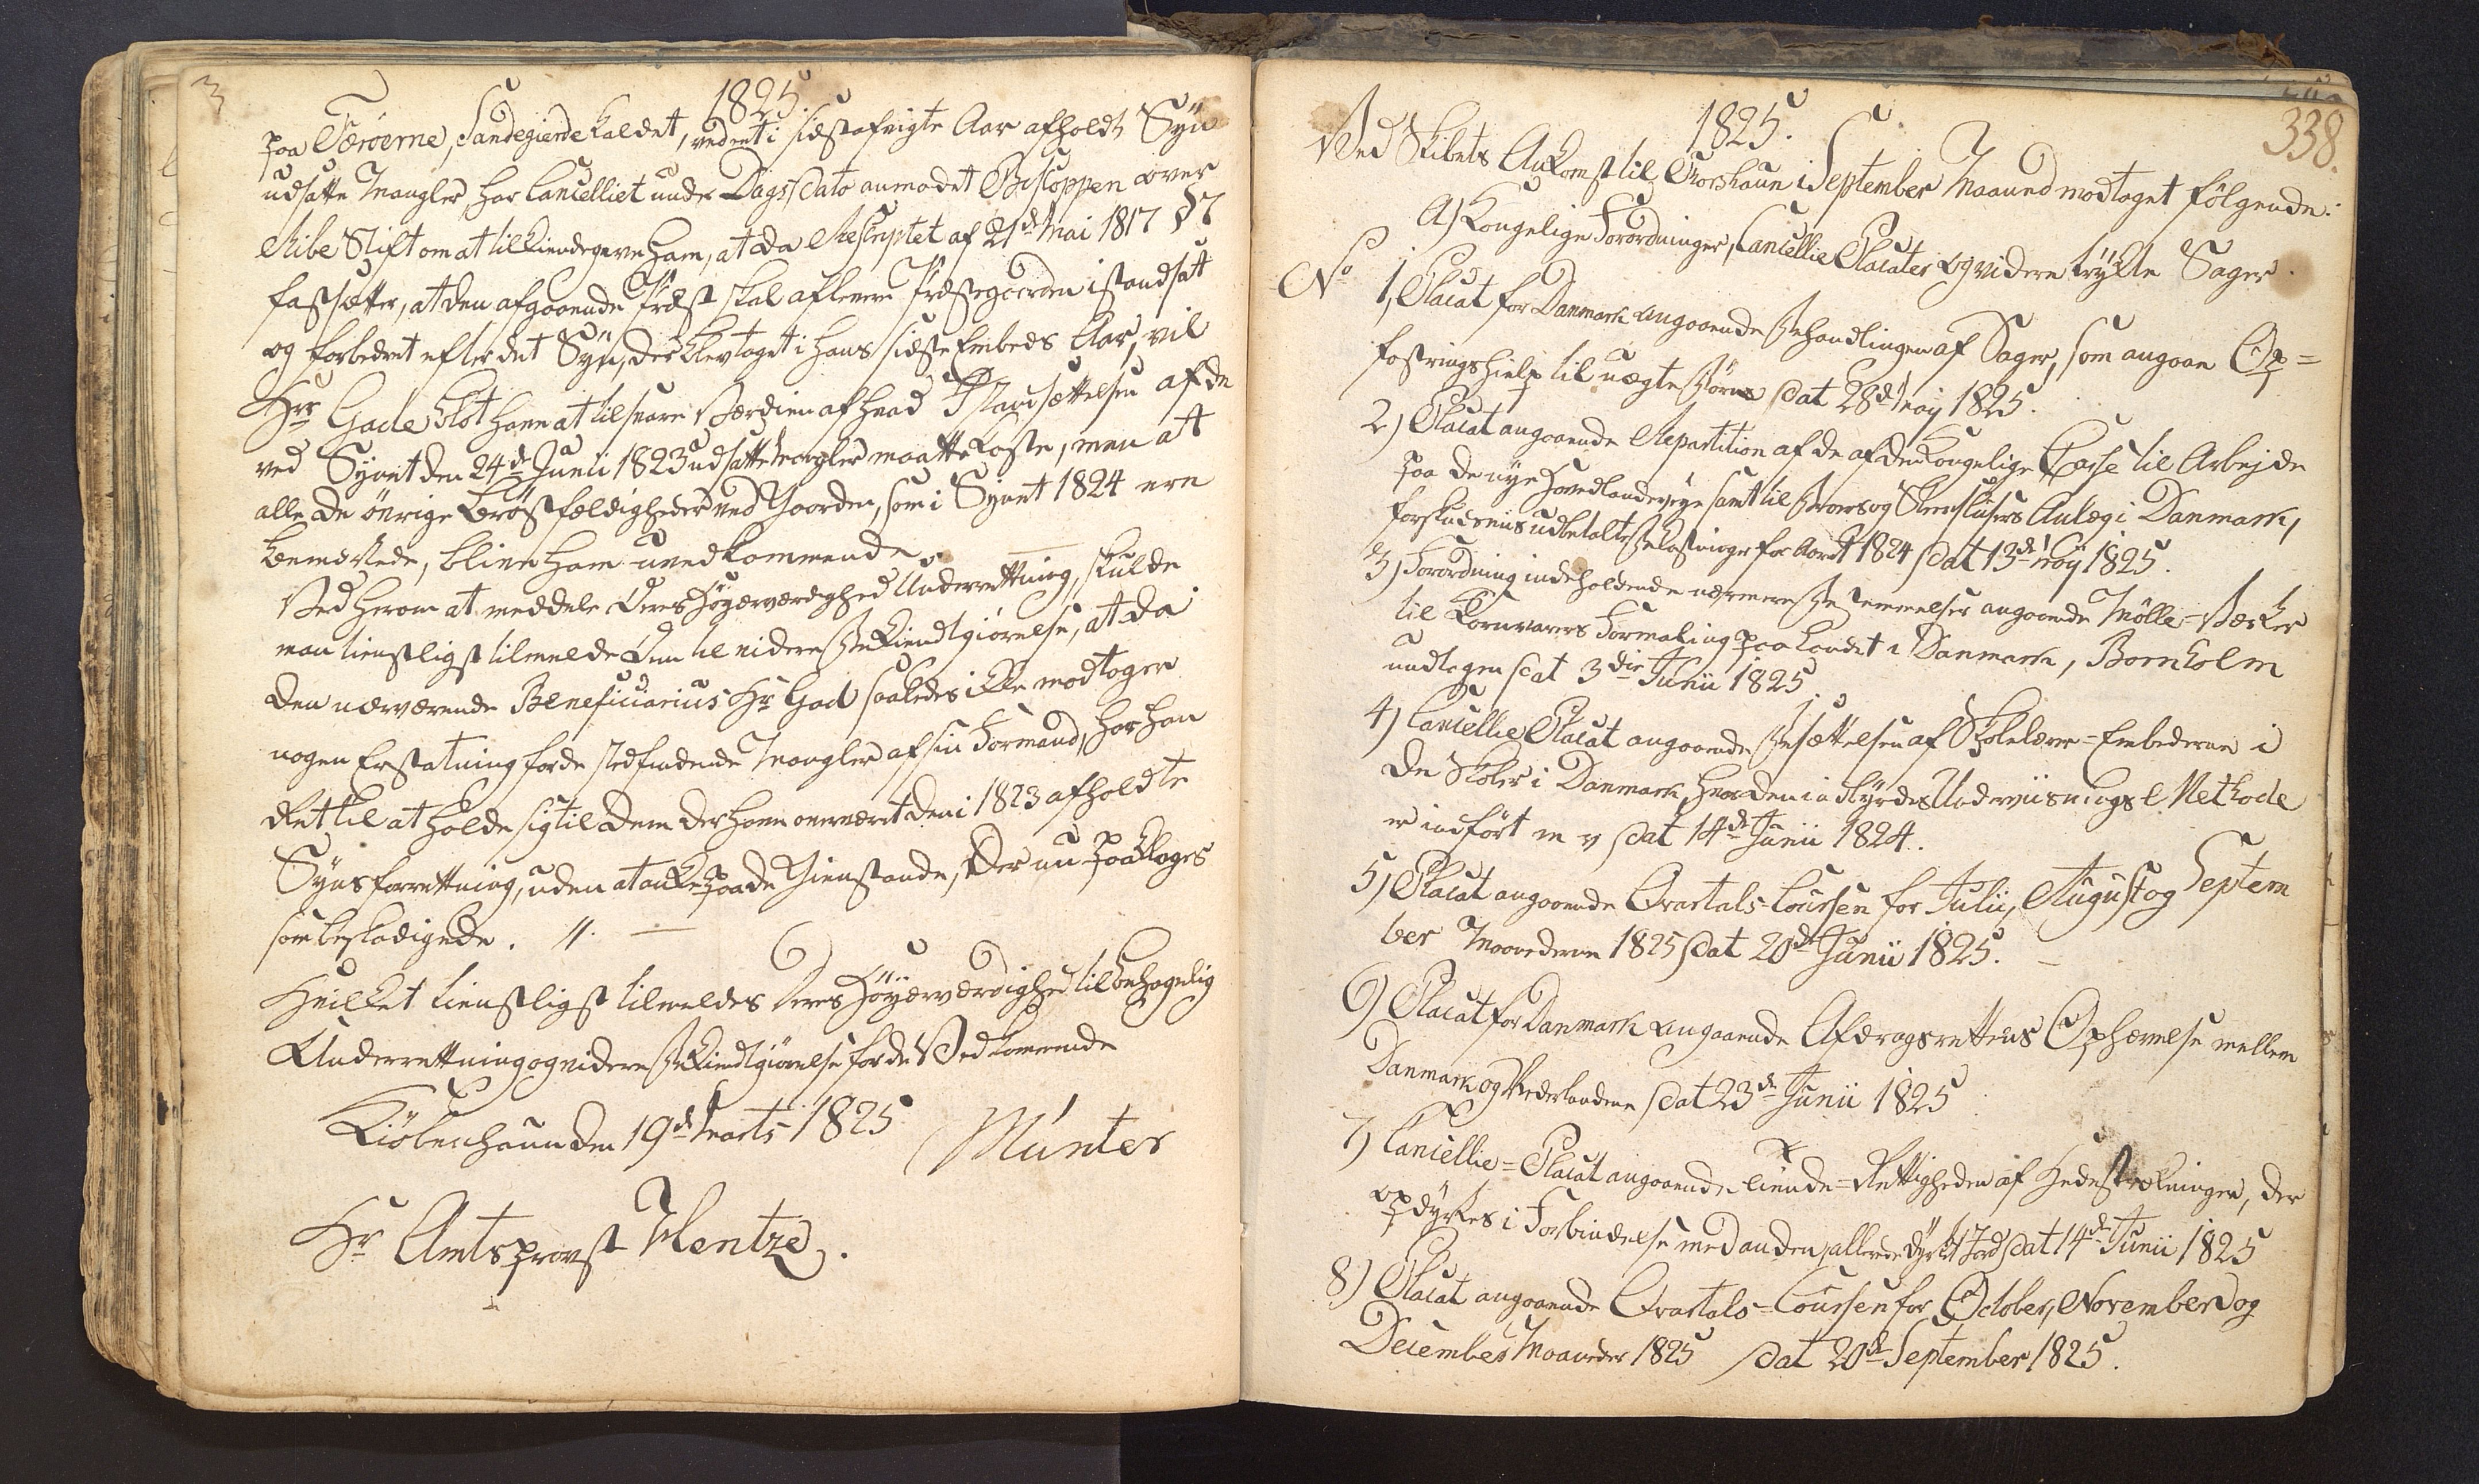 3
1825
paa Færöerne, Sandegierde kaldet, ved et i sidstafvigte Aar afholdt Syn
udsatte Mangler, har Cancelliet under Dags Dato anmodet Biskoppen over
Ribe Stift om at tilkiendegive ham, at da Rescriptet af 21de Mai 1817 § 7
fastsætter, at den afgaaende Præst skal aflevere Præstegaarden istandsatt
og forbedret efter det Syn, der blev taget i hans sidste Embeds Aar, vil
Hr Gade blot have at tilsvare Værdien af hvad Istandsættelsen af de
ved Synet den 24de Junii 1823 udsatte Mangler maatte koste, men att
alle de övrige Bröstfældigheder ved Gaarden, som i Synet 1824 ere
benævnede, blive ham uvedkommende.
Ved herom at meddele Deres Höyærværdighed Underrettning, skulde
man tienstligst tilmelde Dem til videre Bekiendtgiörelse, at da
den nærværende Beneficiarius Hr Gad saaledes ikke modtager
nogen Erstatning for de stedfindende Mangler af sin Formand, har han
Ret til at holde sig til dem der have overværet den i 1823 afholdte
Synsforrettning, uden at anke paa de Gienstande, der nu paaklages
som beskadigede. //. —
Hvilket tienstligst tilmeldes Deres Höyærværdighed til behagelig
Underrettning og videre Bekiendtgiörelse for de Vedkommende
Kiöbenhavn den 19de Marts 1825
Münter
Hr Amtsprovst Hentze.
338.
1825.
Ved Skibets Ankomst til Thorshavn i September Maaned modtaget fölgende:
A) Kongelige Forordninger, Cancellie Placater og videre trykte Sager.
No 1, Placat for Danmark angaaende Behandlingen af Sager, som angaae Op=
fostringshielp til uægte Börn dat 28de May 1825.
2) Placat angaaende Repartition af de af den kongelige Casse til Arbejde
paa de nye Hovedlandeveye samt til Broers og Steenslusers Anlæg i Danmark,
forskudsviis udbetalte Bekostninger for Aaret 1824 dat 13de May 1825.
3) Forordning indeholdende nærmere Bestemmelser angaaende Mölle=Værker
til Kornvarers Formaling paa Landet i Danmark, Bornholm
undtagen dat 3die Junii 1825
4) Cancellie Placat angaaende Besættelsen af Skolelærer=Embederne i
de Skoler i Danmark, hvor den indbyrdes Underviisnings Methode
er indfört m v dat 14de Junii 1824.
5) Placat angaaende Qvartals=Coursen for Julii, August og Septem
ber Maaneder 1825 dat 20de Junii 1825. —
6) Placat for Danmark angaaende Afdragsrettens Ophævelse mellem
Danmark og Nederlandene dat 23de Junii 1825
7) Cancellie=Placat angaaende Tiende=Rettigheden af Hedestrækninger, der
opdyrkes i Forbindelse med anden, allerede dyrket Jord dat 14de Junii 1825
8) Placat angaaende Qvartals=Coursen for October, November og
December Maaneder 1825 dat 20de September 1825.